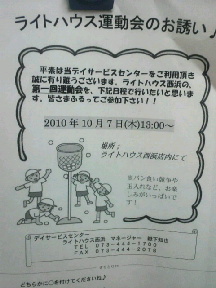 ライトハウス運動会のお誘い♪
平素は当デイサービスセンターをご利用頂き
誠に有り難うございます。ライトハウス西浜の、
第一回運動会を、下記日程で行いたいと思いま
す。皆さまふるってご参加下さい！！
2010年10月7日(木)13:00～
場所；
ライトハウス西浜店内にて
※パン食い競争や
玉入れなど、お楽
しみがいっぱいで
す！
デイサービスセンター
ライトハウス西浜 マネージャー
TEL 073-444-1703
FAX 073-444-2078
どちらかに○を付けてくださいね♪